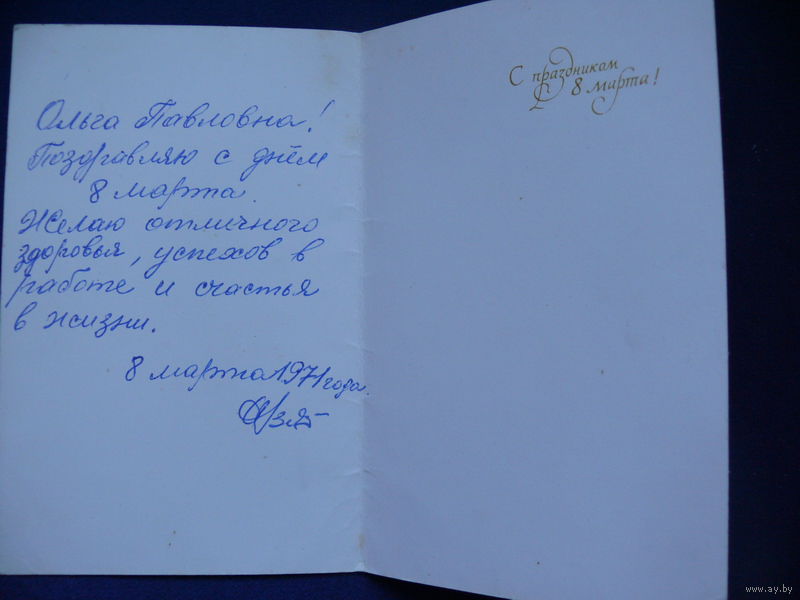 Ольга Павловна!
Поздравляю с днём
8 марта.
Желаю отличного
здоровья, успехов в
работе и счастья
в жизни.
8 марта 1971 года.
С праздником
8 марта!
www.ay.by